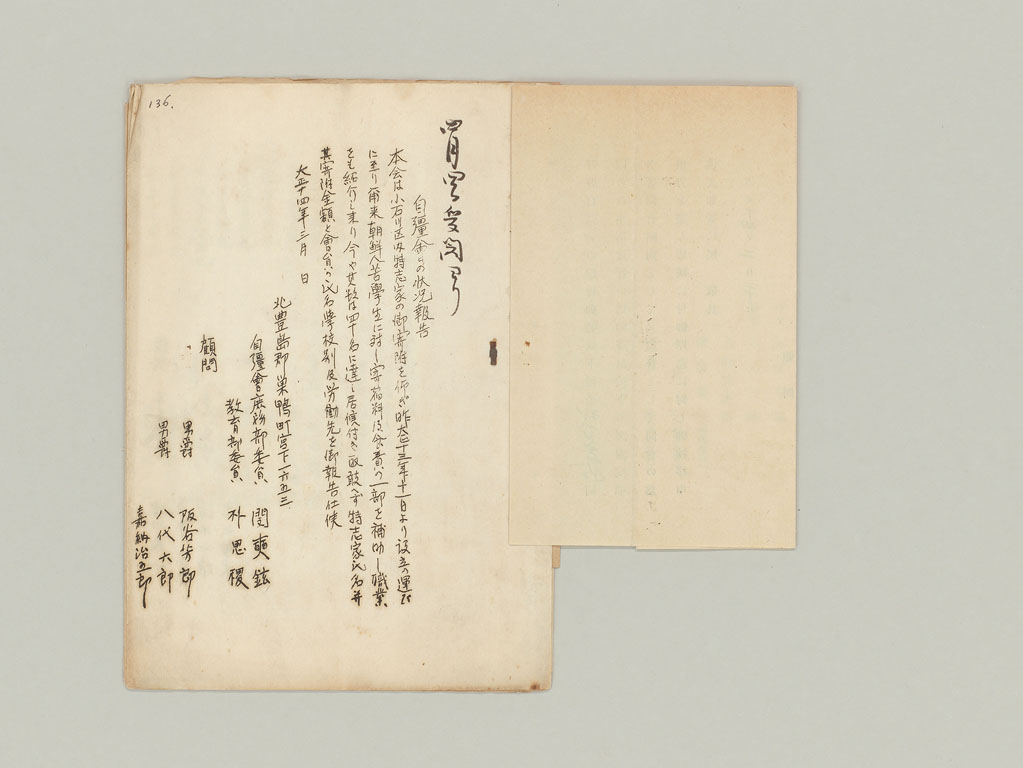 自彊会の状況報告
本会は小石川区内特志家の御寄附を仰ぎ昨大正十三年十一月一日より設立の運び
に至り爾来朝鮮人苦学生に対し寄宿料及食費の一部を補助し職業
をも紹介し来り今や其数は四十名に達し居候付き取敢へず特志家氏名并
其寄附金額と會員の氏名学校別及労働先を御報告仕候
大正十四年三月 日
北豊島郡巣鴨町宮下一六五三
自彊會庶務部委員 閔奭鉉
教育部委員 朴思稷
顧問
男爵 阪谷芳郎
男爵 八代六郎
嘉納治五郎
136.